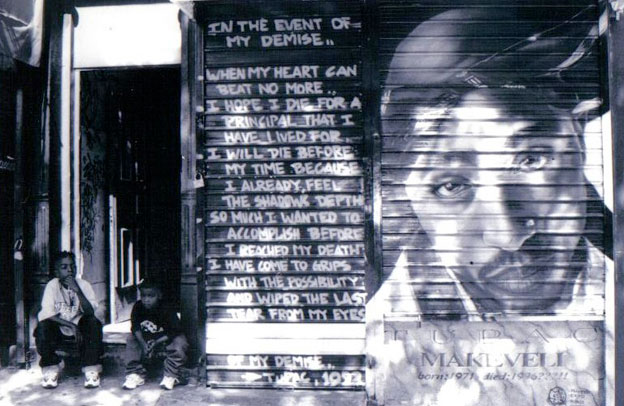 IN THE EVENT OF
MY DEMISE..
WHEN MY HEART CAN
BEAT NO MORE..
I HOPE I DIE FOR A
PRINCIPAL THAT I
HAVE LIVED FOR.
I WILL DIE BEFORE
MY TIME BECAUSE
I ALREADY, FEEL
THE SHADOWS DEPTH
SO MUCH I WANTED TO
ACCOMPLISH BEFORE
I REACHED MY DEATH
I HAVE COME TO GRIPS
WITH THE POSSIBILITY
AND WIPED THE LAST
TEAR FROM MY EYES
OF MY DEMISE..
TUPAC
MAKEVELI
born:1971 died:1996???!!